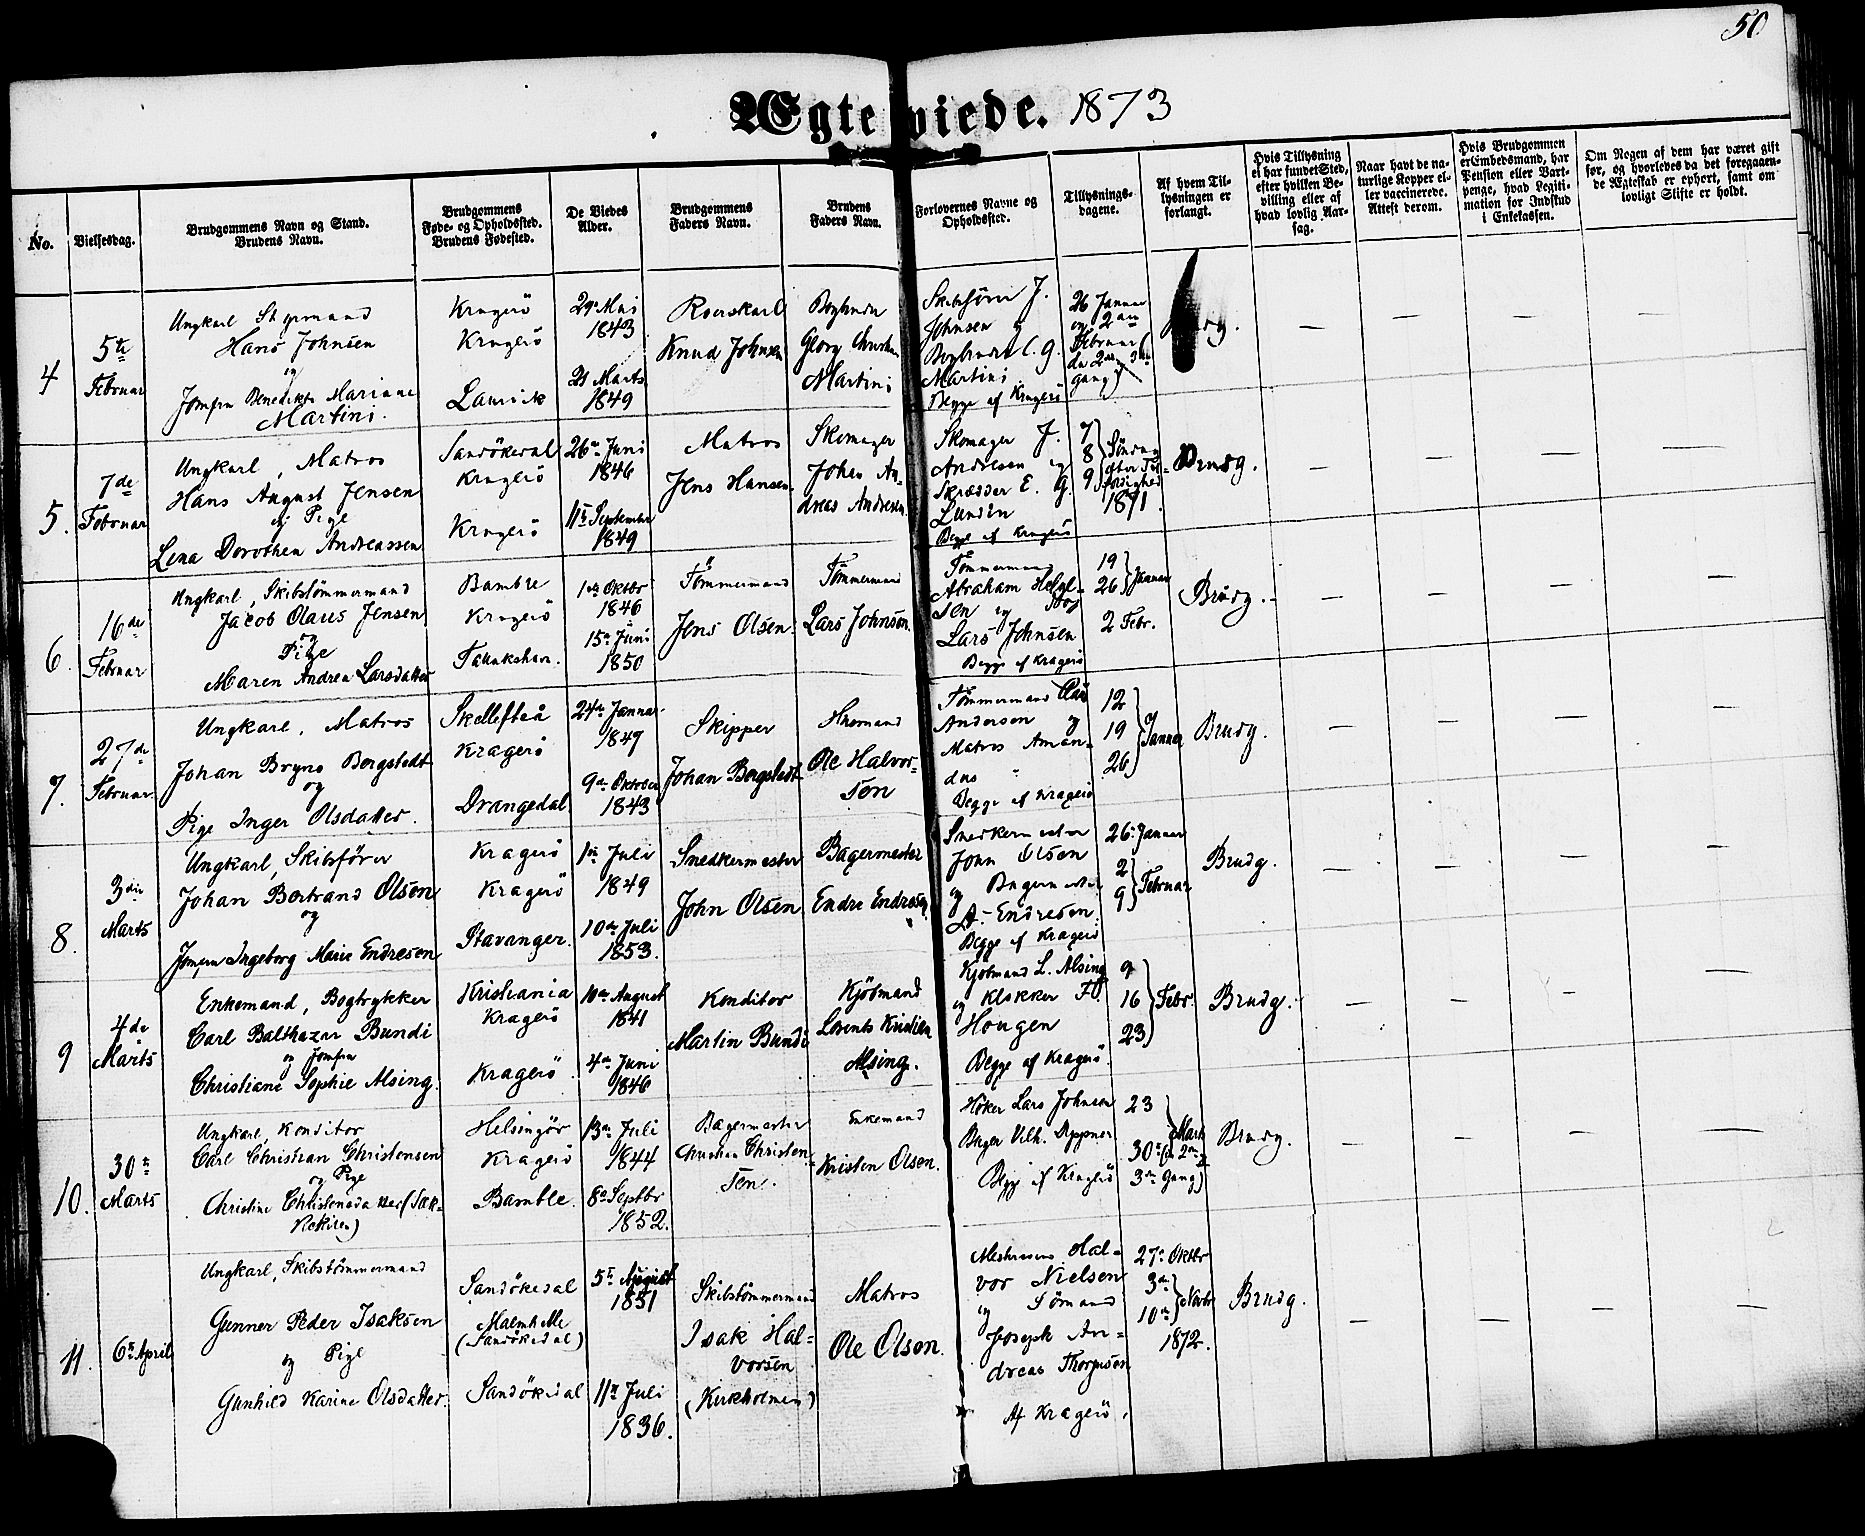 50
Ægteviede. 1873
No.
Vielsesdag.
Brudgommens Navn og Stand.
Brudens Navn.
Brudgommens
Føde- og Opholdssted.
Brudens Fødested.
De Viedes
Alder.
Brudgommens
Faders Navn.
Brudens
Faders Navn.
Forlovernes Navne og
Opholdssted.
Tillysnings-
dagene.
Af hvem Til-
lysningen er
forlangt.
Hvis Tillysning
ei har fundet Sted,
efter hvilken Be-
villing eller af
hvad lovlig Aar-
sag.
Naar havt de na-
turlige Kopper el-
ler vaccinerede.
Attest derom.
Hvis Brudgommen
er Embedsmand, har
Pension eller Vart-
penge, hvad Legiti-
mation for Indskud
i Enkekassen.
Om Nogen af dem har været gift
før, og hvorledes da det foregaaen-
de Ægteskab er ophørt, samt om
lovligt Skifte er holdt.
4
5te
Februar
Ungkarl Styrmand
Hans Johnsen
og
Jomfru Benedikte Mariane
Martini.
Kragerö
Kragerö
Laurvik
29de Mai
1843
21 Marts
1849
Roerskarl
Knud Johnsen
Georg Christian
Martini
Skibsförer J.
Johnsen og
C. G.
Martini
Begge af Kragerö
26 Januar
og 2den
Februar
Gang)
Brudg.
— — — —
5.
7de
Februar
Ungkarl, Matros
Hans August Jensen
og Pige
Lena Dorothea Andreassen
Sandökedal
Kragerö
Kragerö
26de Juni
1846
11te September
1849
Matros
Jens Hansen.
Skomager
Johan An-
dreas Andresen.
Skomager J.
Andresen og
Skrædder E. G.
Lunden
Begge af Kragerö
7
8
9
Söndag
efter
1871.
Brudg.
— — — —
6.
16de
Februar
Ungkarl, Skibstömmermand
Jacob Olaus Jensen
og
Pige
Maren Andrea Larsdatter
Bamble
Kragerö
1ste Oktbr
1846
15de Juni
1850
Tömmermand
Jens Olsen.
Tömmermand
Lars Johnsen.
Tömmermand
Abraham
sen og
Lars Johnsen
Begge af Kragerö
19
26 } Januar
2 Febr.
Brudg.
— — — —
7.
27de
Februar.
Ungkarl, Matros
Johan Bryno Bergstedt
og
Pige Inger Olsdatter.
Skellefteå
Kragerö
Drangedal
24de Januar
1849
9de Oktober
1843
Skipper
Johan Bergstedt
Ole Halvor-
sen
Tömmermand
Andersen og
Matros Aman-
dus "
Begge af Kragerö
12
19
26
} Januar
Brudg.
— — — —
8.
3die
Marts
Ungkarl, Skibsförer
Johan Bertrand Olsen
og
Jomfru Ingeborg Marie Endresen
Kragerö
Kragerö
Stavanger.
1ste Juli
1849
10de Juli
1853.
Snedkermester
John Olsen
Bagermester
Endre Endresen
Snedkermester
John Olsen
og Bagermester
Endresen.
Begge af Kragerö
26. Januar
2
9
} Februar
Brudg.
— — — —
9
4de
Marts
Enkemand, Bogtrykker
Carl Balthazar Bundi
og Jomfru
Christiane Sophie Alsing.
Kristiania
Kragerö
Kragerö
10de August
1841
4de Juni
1846
Konditor
Martin Bundi
Kjöbmand
Lorents Kristian
Alsing.
Kjöbmand L. Alsing
og Klokker
Hougen
Begge af Kragerö.
9
16
23
} Febr.
Brudg.
— — —
10.
30te
Marts
Ungkarl, Konditor
Carl Christian Christensen
og Pige
Christine Christensdatter
Helsingör
Kragerö
Bamble
13de Juli
1844
8de Septbr
1852.
Bagermester
Christian Christen-
sen.
Enkemand
Kristen Olsen.
Höker Lars Johnsen
Bager Vilh.
Begge af Kragerö
23
30te
3die Gang)
} Marts
Brudg.
— — — —
11.
6te April
Ungkarl, Skibstömmermand
Gunner Peder Isaksen
og Pige
Gunhild Karine Olsdatter.
Sandökedal
(Sandökedal)
Sandökedal
5te August
1851
11te Juli
1836.
Skibstömmermand
Isak Hal-
vorsen
(Kirkholmen)
Matros
Ole Olsen.
Hal-
vor Nielsen
og Sömand
Joseph An-
dreas
Af Kragerö.
27de Oktbr
3de
10de
} Novbr
1872.
Brudg.
— — — —